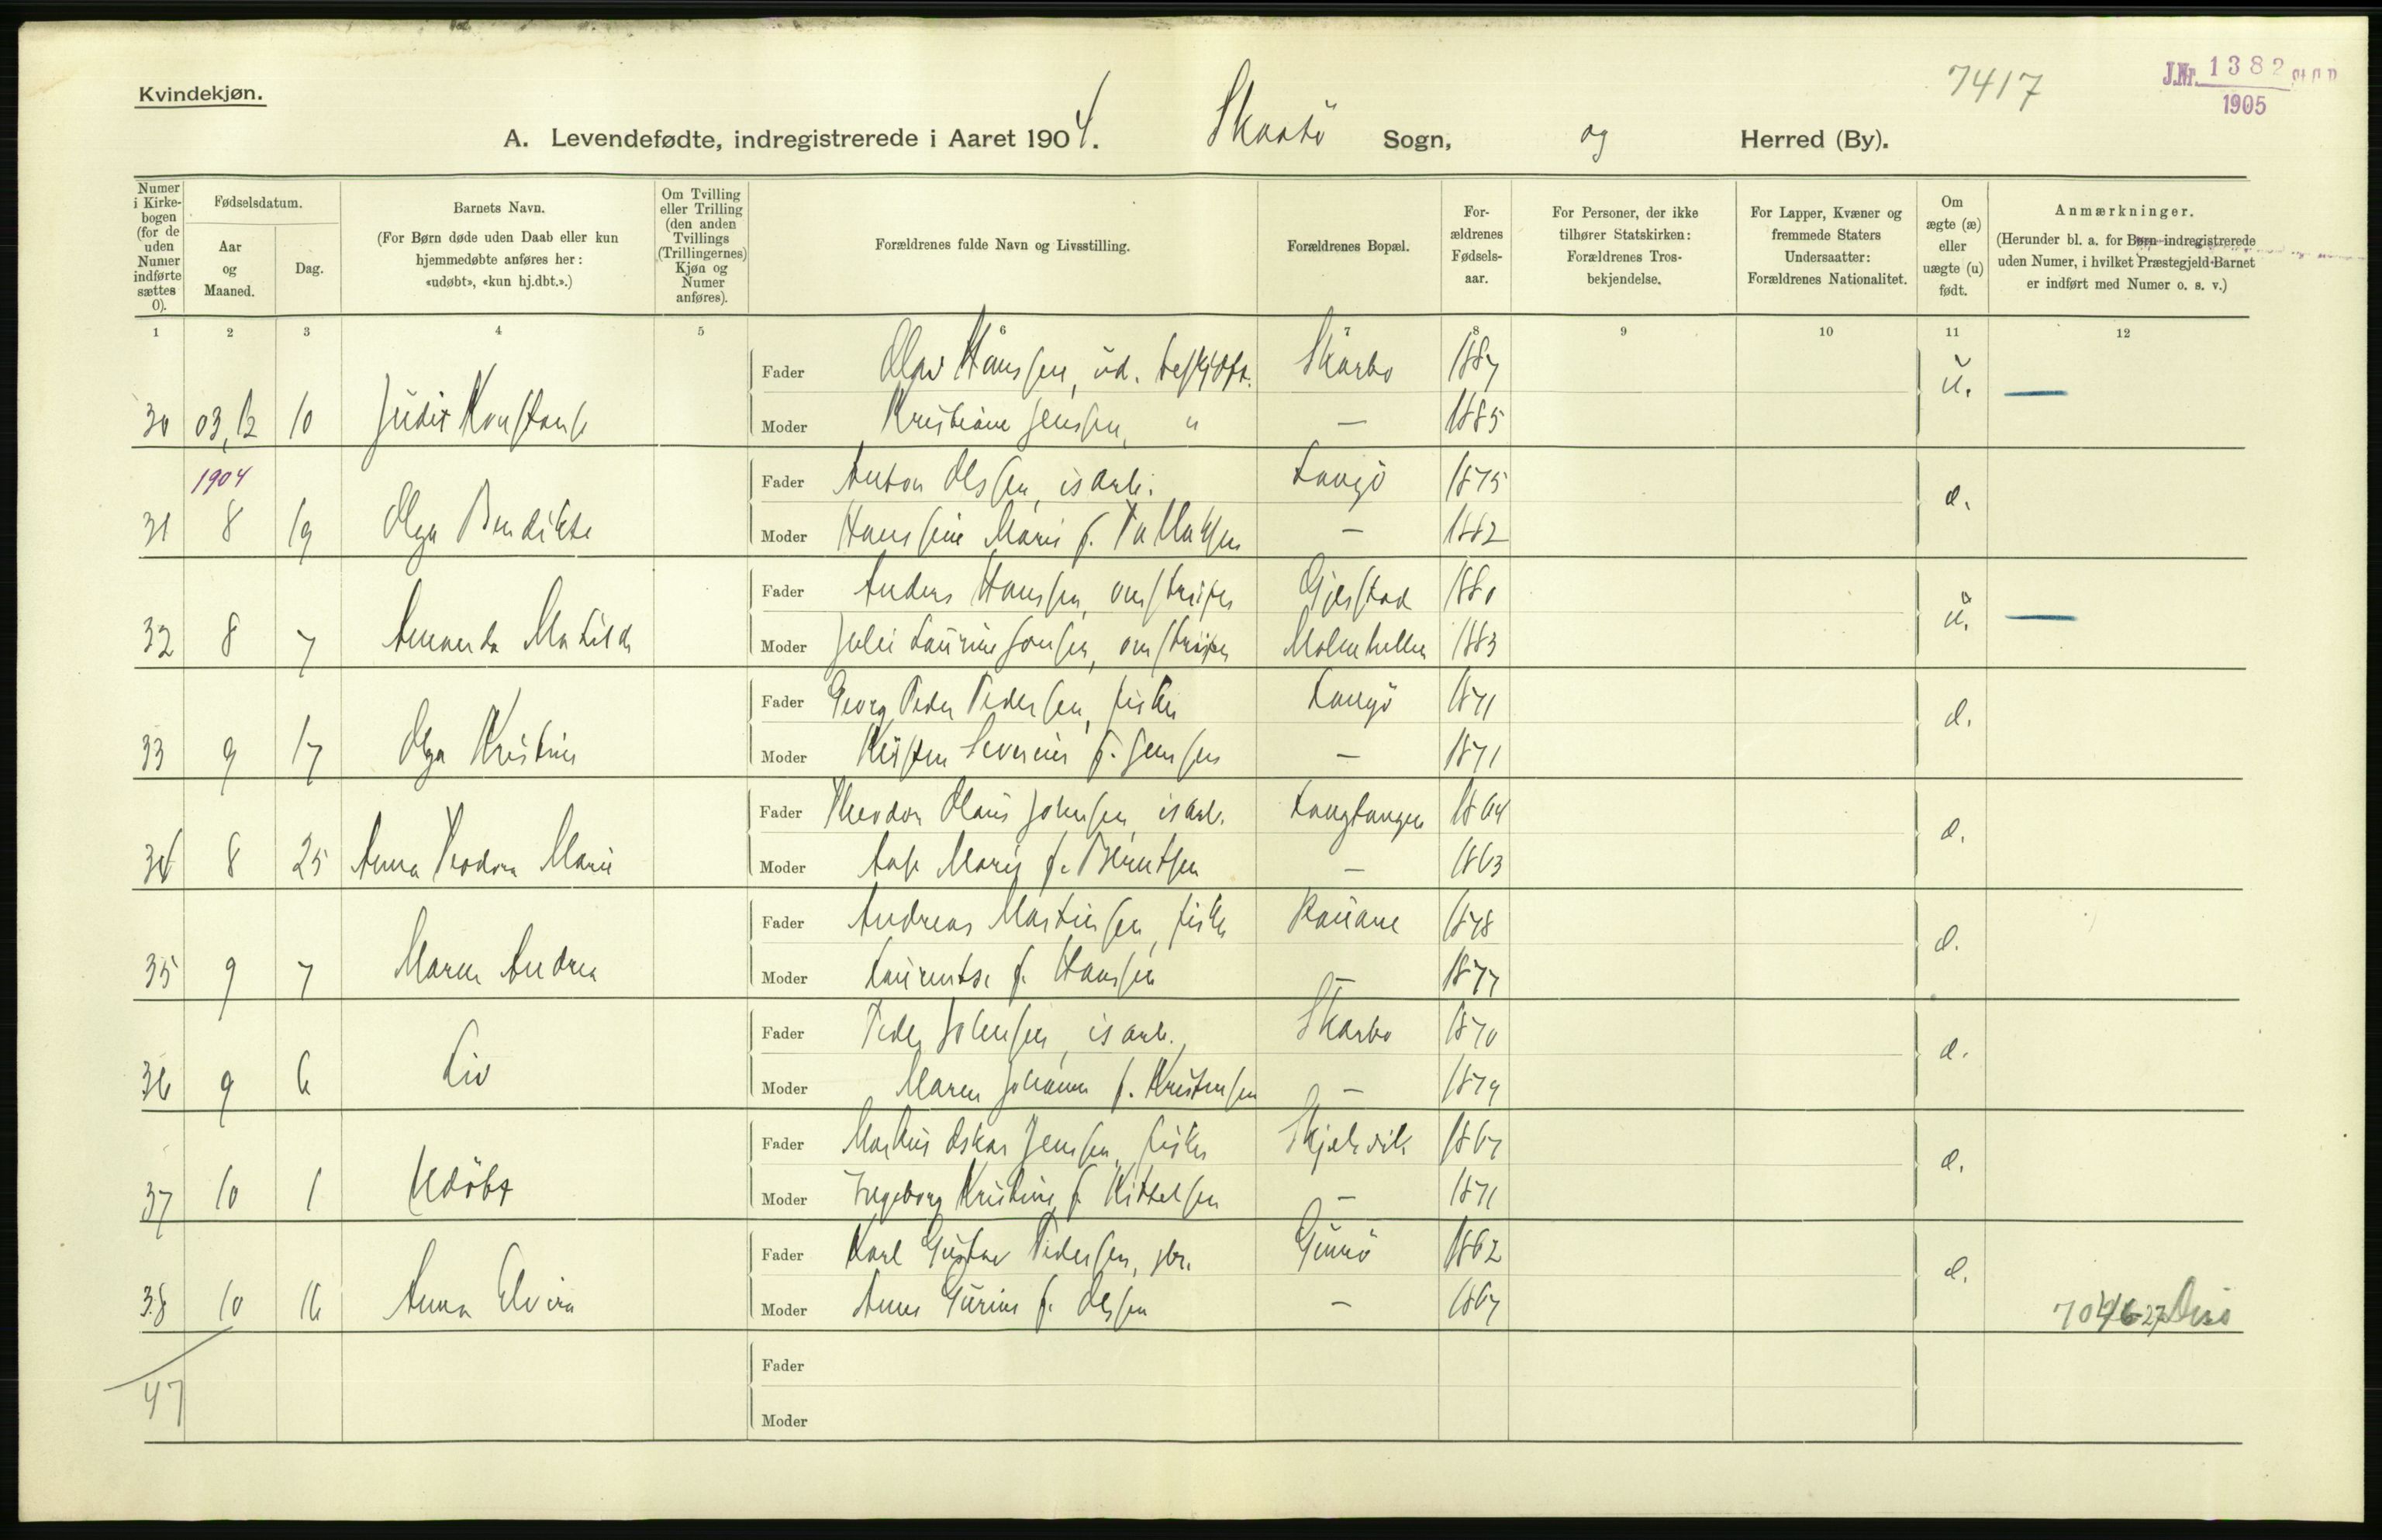 Kvindekjøn.
7417
J.Nr. 1382
1905
A. Levendefødte, indregistrerede i Aaret 1904. Skaatö Sogn, og Herred (By).
Numer i Kirkebogen (for de uden Numer indførte sættes 0).
Fødselsdatum.
Aar og Maaned.
Dag.
Barnets Navn.
(For Børn døde uden Daab eller kun hjemmedøbte anføres her: «udøbt», «kun hj.dbt.».)
Om Tvilling eller Trilling (den anden Tvillings (Trillingernes) Kjøn og Numer anføres).
Forældrenes fulde Navn og Livsstilling.
Forældrenes Bopæl.
Forældrenes Fødselsaar.
For Personer, der ikke tilhører Statskirken: Forældrenes Trosbekjendelse.
For Lapper, Kvæner og fremmede Staters Undersaatter: Forældrenes Nationalitet.
Om ægte (æ) eller uægte (u) født.
Anmærkninger.
(Herunder bl. a. for Børn indregistrerede uden Numer, i hvilket Præstegjeld Barnet er indført med Numer o. s. v.)
1 2 3 4 5 6 7 8 9 10 11 12
Fader Olav Hanssen, ud. beskjæft. Skarbo 1887 u. —
30 03,12 10 Judit Konstanse Moder Kristiane Jenssen, " — 1885
1904
Fader Anton Olssen, isarb. Langö 1875 æ.
31 8 19 Olga Bendikte Moder Hanssine Marie f. Tallaksen — 1882
Fader Anders Hanssen, omstreifer Gjerstad 1880 u. —
32 8 7 Amanda Matilde Moder Julie Laurine Jonsen, omstreifer Molenhellen 1883
Fader Georg Peder Pedersen, fisker Langö 1871 æ.
33 9 17 Olga Kristine Moder Kirsten Severine f. Jenssen — 1871
Fader Theodor Olaus Johnsen, isarb. Langtangen 1864 æ.
34 8 25 Anna Teodora Marie Moder Aase Marie f. Berntsen — 1863
Fader Andreas Martinsen, fisker Rauane 1878 æ.
35 9 7 Maren Andrea Moder Laurentse f. Hanssen — 1877
Fader Peder Johnsen, isarb., Skarbo 1870 æ.
36 9 6 Liv Moder Maren Johanne f. Kristensen — 1879
Fader Markus Oskar Jenssen, fisker Skjelsvik 1867 æ.
37 10 1 Udöbt Moder Ingeborg Kristine f. Kittelsen — 1871
Fader Karl Gustav Pedersen, gbr. Gumö 1862 æ.
38 10 16 Anna Elvira Moder Anne Gurine f. Olssen — 1867
Fader
47
Moder